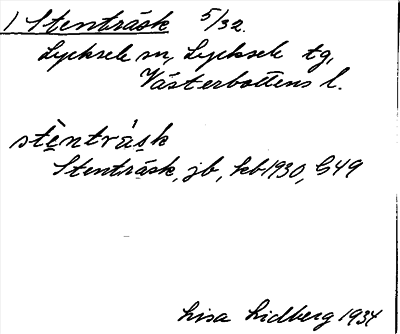 1 Stenträsk 5/32.
Lycksele sn, Lycksele tg,
Västerbottens l.
stènträ́sk
Stenträsk, jb, kb 1930, G49
Lisa Lidberg 1934